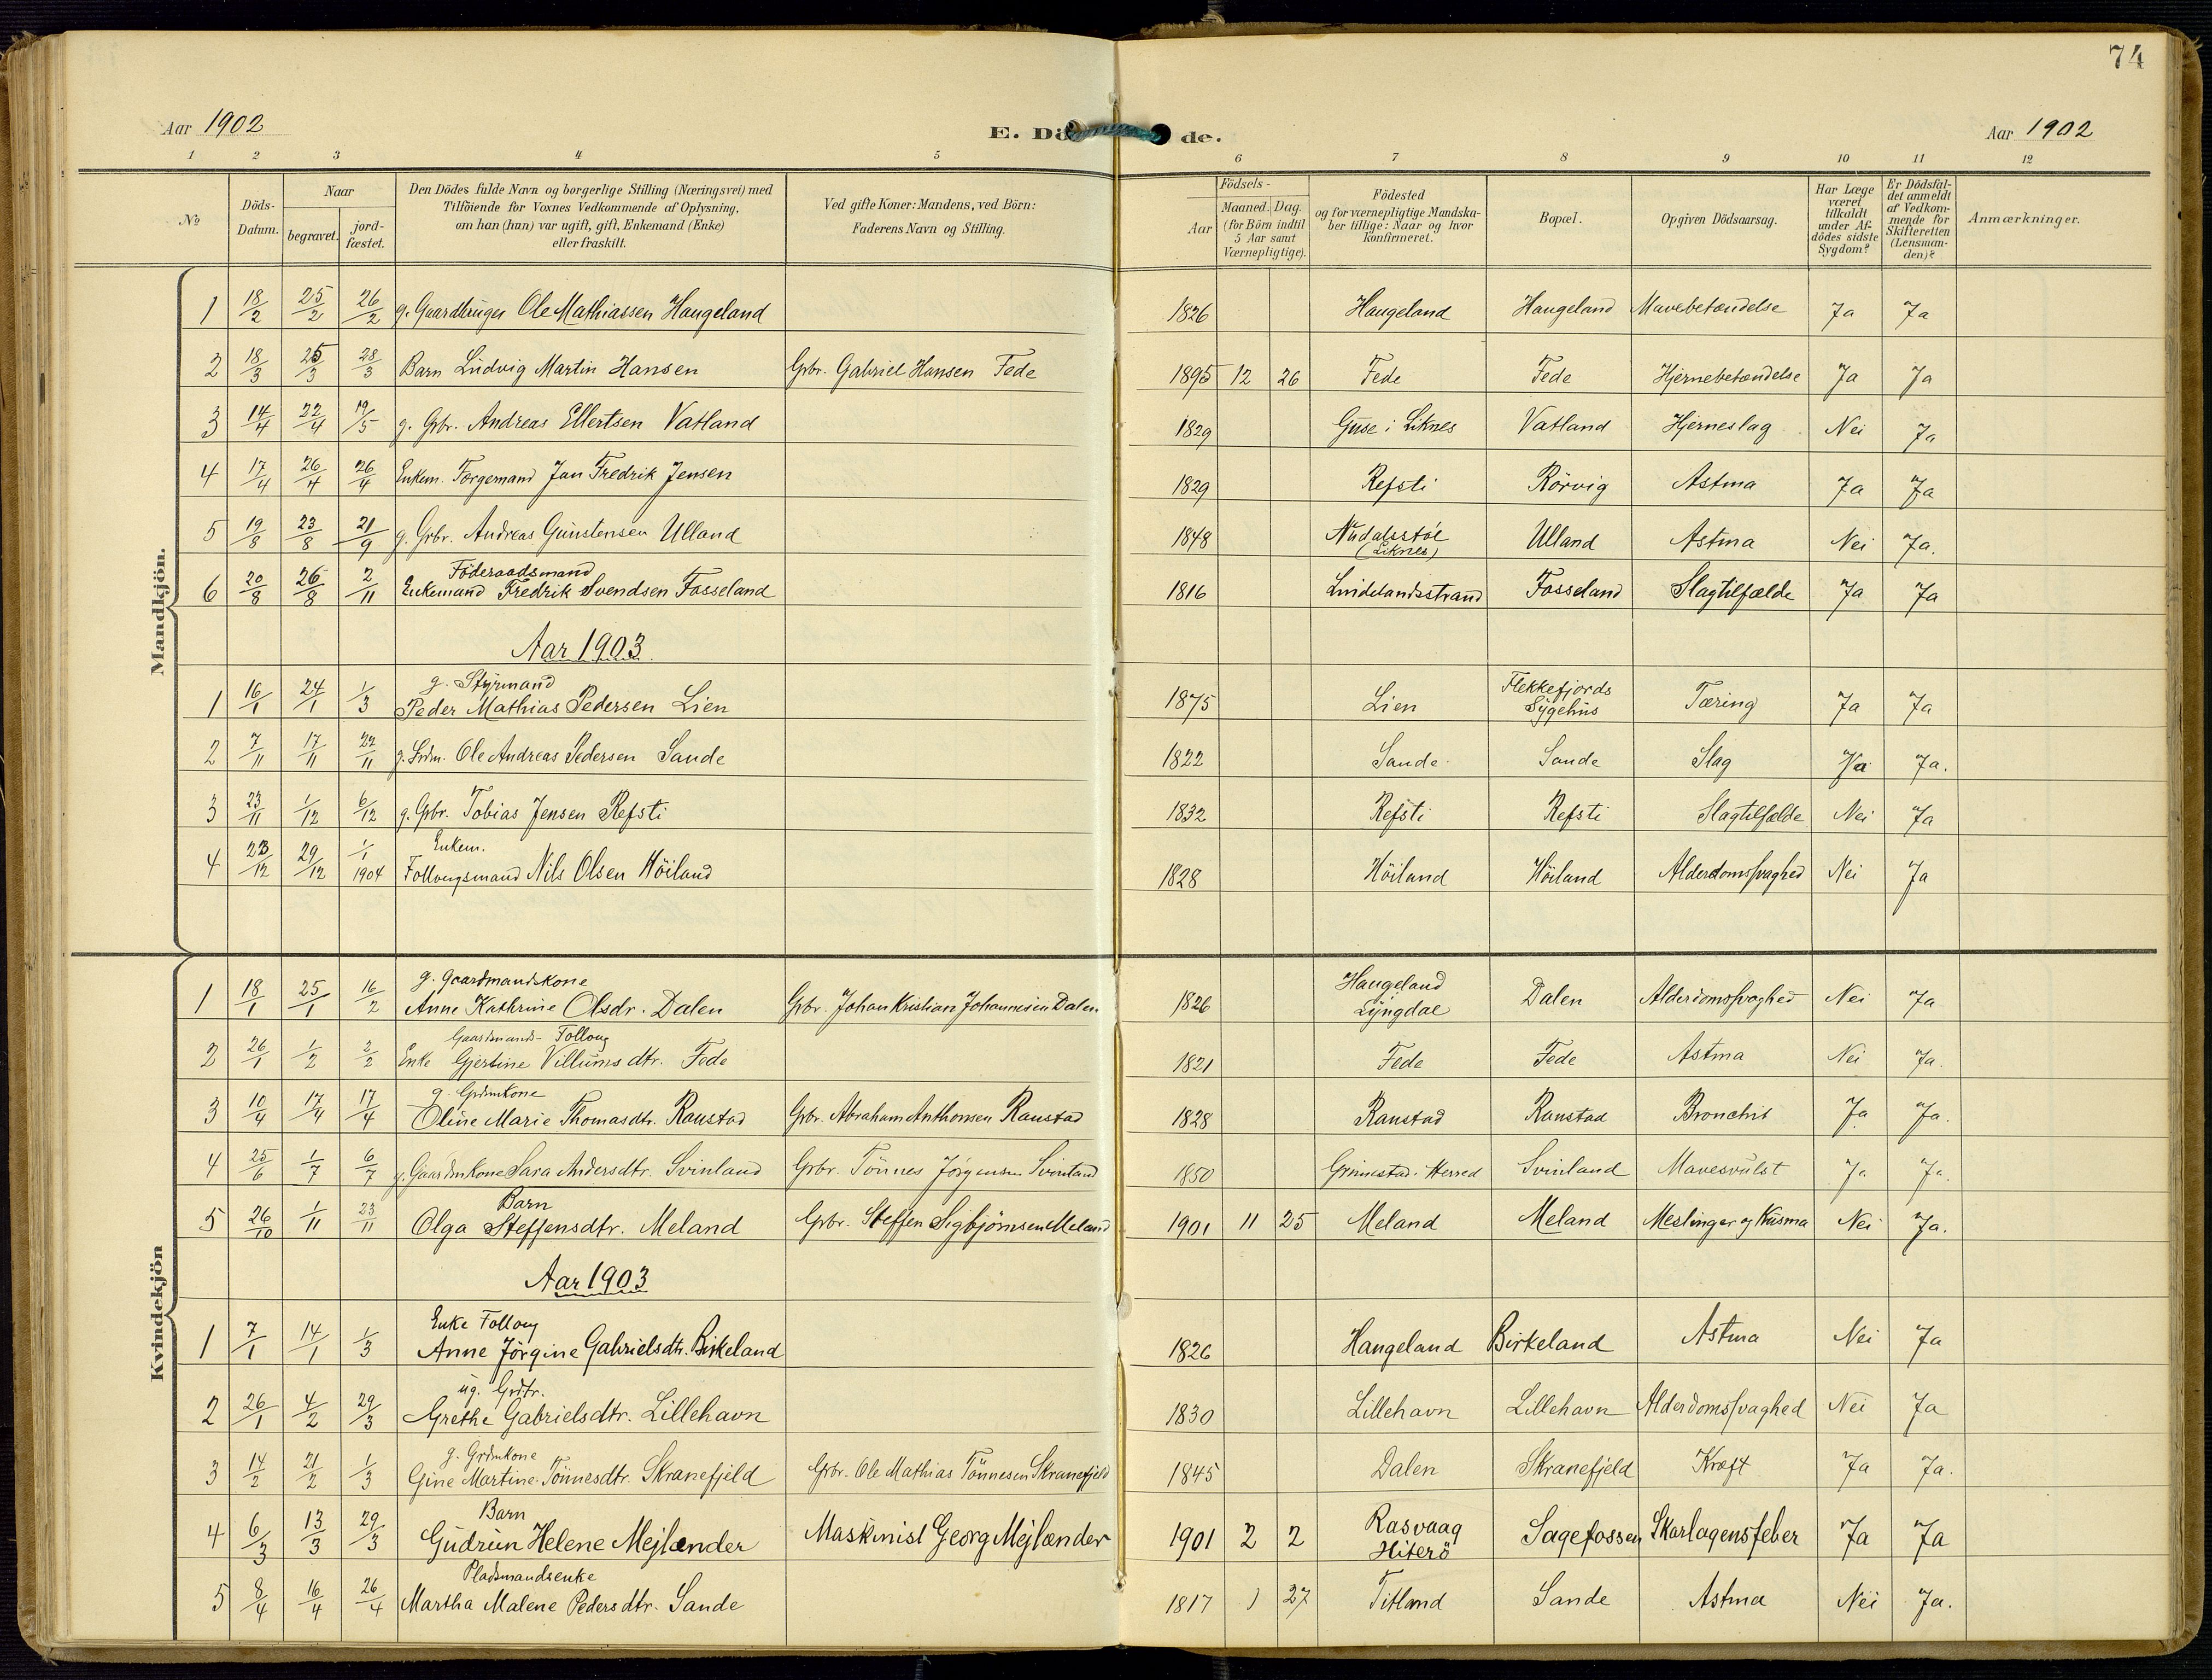 74
Aar 1902
E. Dö de.
Aar 1902
1 2 3 4 5 6 7 8 9 10 11 12
No
Döds-Datum.
Naar
begravet.
jord-fæstet.
Den Dödes fulde Navn og borgerlige Stilling (Næringsvei) med
Tilföiende for Voxnes Vedkommende af Oplysning,
om han (hun) var ugift, gift, Enkemand (Enke)
eller fraskilt.
Ved gifte Koner: Mandens, ved Börn:
Faderens Navn og Stilling.
Födsels-
Aar
Maaned. Dag.
(for Börn indtil
5 Aar samt
Værnepligtige).
Födested
og for værnepligtige Mandska-
ber tillige: Naar og hvor
konfirmeret.
Bopæl.
Opgiven Dödsaarsag.
Har Læge
været
tilkaldt
under Af-
dödes sidste
Sygdom?
Er Dödsfal-
det anmeldt
af Vedkom-
mende for
Skifteretten
(Lensman-
den)?
Anmærkninger.
Mandkjön.
1 18/2 25/2 26/2 g. Gaardbruger Ole Mathiassen Haugeland 1826 Haugeland Haugeland Mavebetændelse Ja Ja
2 18/3 25/3 28/3 Barn Ludvig Martin Hansen Gbr. Gabriel Hansen Fede 1895 12 26 Fede Fede Hjernebetændelse Ja Ja
3 14/4 22/4 19/5 g. Gbr. Andreas Ellertsen Vatland 1829 Guse i Liknes Vatland Hjerneslag Nei Ja
4 17/4 26/4 26/4 Enkem. Jan Fredrik Jensen 1829 Refsti Rörvig Astma Ja Ja
5 19/8 23/8 21/9 g. Gbr. Andreas Gunstensen Ulland 1848 Nudalsstöl (Liknes) Ulland Astma Nei Ja.
6 20/8 26/8 2/11 Föderaadsmand
Enkemand Fredrik Svendsen Fosseland 1816 Lindelandsstrand Fosseland Slagtilfælde Ja Ja
Aar 1903.
1 16/1 24/1 1/3 g. Styrmand
Peder Mathias Pedersen Lien 1875 Lien Flekkefjords Sygehus Tæring Ja Ja
2 7/11 17/11 22/11 g. Grdm. Ole Andreas Pedersen Sande 1822 Sande Sande Slag Ja Ja.
3 23/11 1/12 6/12 g. Gbr. Tobias Jensen Refsti 1832 Refsti Refsti Slagtilfælde Nei Ja
4 23/12 29/12 1/1 1904 Enkem.
Follougsmand Nils Olsen Höiland 1828 Höiland Höiland Alderdomssvaghed Nei Ja
Kvindekjön
1 18/1 25/1 16/2 g. Gaardmandskone
Anne Kathrine Olsdr. Dalen Gbr. Johan Kristian Johannesen Dalen 1826 Haugeland Lyngdal Dalen Alderdomssvaghed Nei Ja
2 26/1 1/2 2/2 Gaardmands-Folloug
Enke Gjertine Villumsdtr. Fede 1821 Fede Fede Astma Nei Ja.
3 10/4 17/4 17/4 g. Grdmkone
Oline Marie Thomasdtr. Raustad Gbr. Abraham Anthonsen Raustad 1828 Raustad Raustad Bronchit Ja Ja.
4 25/6 1/7 6/7 g. Gaardmkone Sara Andersdtr. Svinland Gbr. Tönnes Jörgensen Svinland 1850 Grimestad i Herred Svinland Mavesvulst Ja Ja.
5 26/10 1/11 23/11 Barn
Olga Steffensdtr. Meland Gbr. Steffen Sigbjörnsen Meland 1901 11 25 Meland Meland Meslinger og Krisma Nei Ja.
Aar 1903
1 7/1 14/1 1/3 Enke Folloug
Anne Jörgine Gabrielsdtr. Birkeland 1826 Haugeland Birkeland Astma Nei Ja
2 26/1 4/2 29/3 ug. Grdtr.
Grethe Gabrielsdtr. Lillehavn 1830 Lillehavn Lillehavn Alderdomssvaghed Nei Ja
3 14/2 21/2 1/3 g. Grdmkone
Gine Martine Tönnesdtr. Skranefjeld Gbr. Ole Mathias Tönnesen Skranefjeld 1845 Dalen Skranefjeld Kræft Ja Ja.
4 6/3 13/3 29/3 Barn
Gudrun Helene Mejlænder Maskinist Georg Mejlænder 1901 2 2 Rasvaag Hiterö Sagefossen Skarlagensfeber Ja Ja
5 8/4 16/4 26/4 Pladsmandsenke
Martha Malene Pedersdtr. Sande 1817 1 27 Titland Sande Astma Nei Ja.